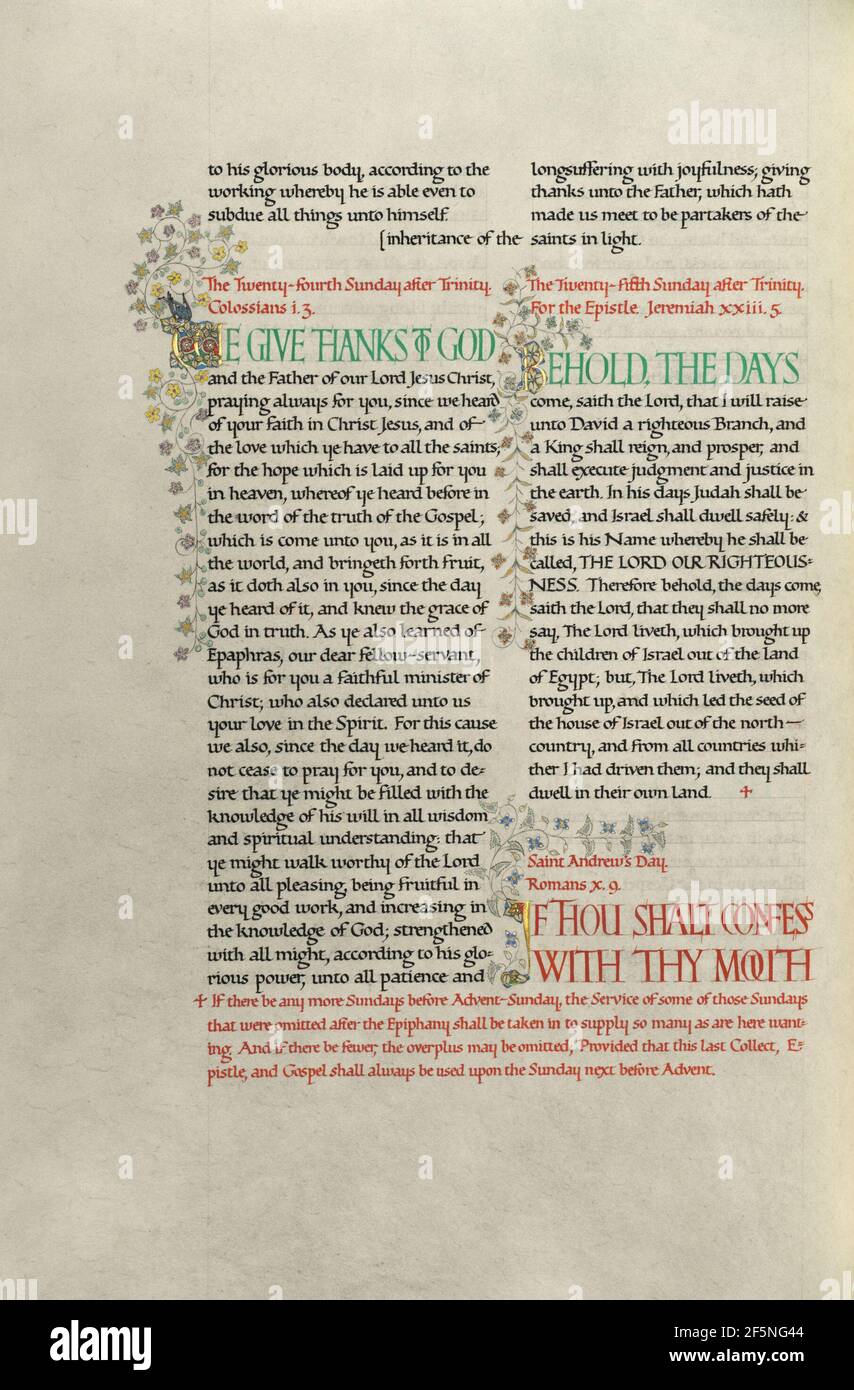 to his glorious body, according to the
working whereby he is able even to
subdue all things unto himself.
The Twenty-fourth Sunday after Trinity.
Colossians i. 3.
WE GIVE THANKS TO GOD
and the Father of our Lord Jesus Christ,
praying always for you, since we heard
of your faith in Christ Jesus, and of
the love which ye have to all the saints,
for the hope which is laid up for you
in heaven, whereof ye heard before in
the word of the truth of the Gospel;
which is come unto you, as it is in all
the world, and bringeth forth fruit,
as it doth also in you, since the day
ye heard of it, and knew the grace of
God in truth. As ye also learned of
Epaphras, our dear fellow-servant,
who is for you a faithful minister of
Christ; who also declared unto us
your love in the Spirit. For this cause
we also, since the day we heard it, do
not cease to pray for you, and to de=
sire that ye might be filled with the
knowledge of his will in all wisdom
and spiritual understanding: that
ye might walk worthy of the Lord
unto all pleasing, being fruitful in
every good work, and increasing in
the knowledge of God; strengthened
with all might, according to his glo=
rious power, unto all patience and
longsuffering with joyfulness; giving
thanks unto the Father, which hath
made us meet to be partakers of the
[inheritance of the saints in light.
The Twenty-fifth Sunday after Trinity.
For the Epistle. Jeremiah xxiii. 5.
BEHOLD, THE DAYS
come, saith the Lord, that I will raise
unto David a righteous Branch, and
a King shall reign, and prosper, and
shall execute judgment and justice in
the earth. In his days Judah shall be
saved, and Israel shall dwell safely: &
this is his Name whereby he shall be
called, THE LORD OUR RIGHTEOUS=
NESS. Therefore behold, the days come,
saith the Lord, that they shall no more
say, The Lord liveth, which brought up
the children of Israel out of the land
of Egypt; but, The Lord liveth, which
brought up, and which led the seed of
the house of Israel out of the north-
country, and from all countries whi=
ther I had driven them; and they shall
dwell in their own land. ☩
Saint Andrew's Day.
Romans x. 9.
IF THOU SHALT CONFESS
WITH THY MOUTH
☩ If there be any more Sundays before Advent-Sunday, the Service of some of those Sundays
that were omitted after the Epiphany shall be taken in to supply so many as are here want-
ing. And if there be fewer, the overplus may be omitted, Provided that this last Collect, E-
pistle, and Gospel shall always be used upon the Sunday next before Advent.
alamy
alamy
Image ID: 2F5NG44
www.alamy.com